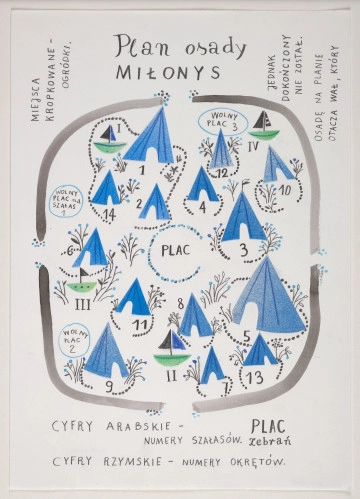 Plan osady
MIŁONYS
MIEJSCA
KROPKOWANE -
OGRÓDKI.
OSADĘ NA PLANIE
OTACZA WAŁ, KTÓRY
JEDNAK
DOKOŃCZONY
NIE ZOSTAŁ.
I
1
WOLNY
PLAC 3
12
IV
10
WOLNY
PLAC na
SZAŁAS
1
14
2
4
3
PLAC
6
III
11
8
5
WOLNY
PLAC
2
9
II
7
13
CYFRY ARABSKIE -
NUMERY SZAŁASÓW.
PLAC
zebrań
CYFRY RZYMSKIE - NUMERY OKRĘTÓW.